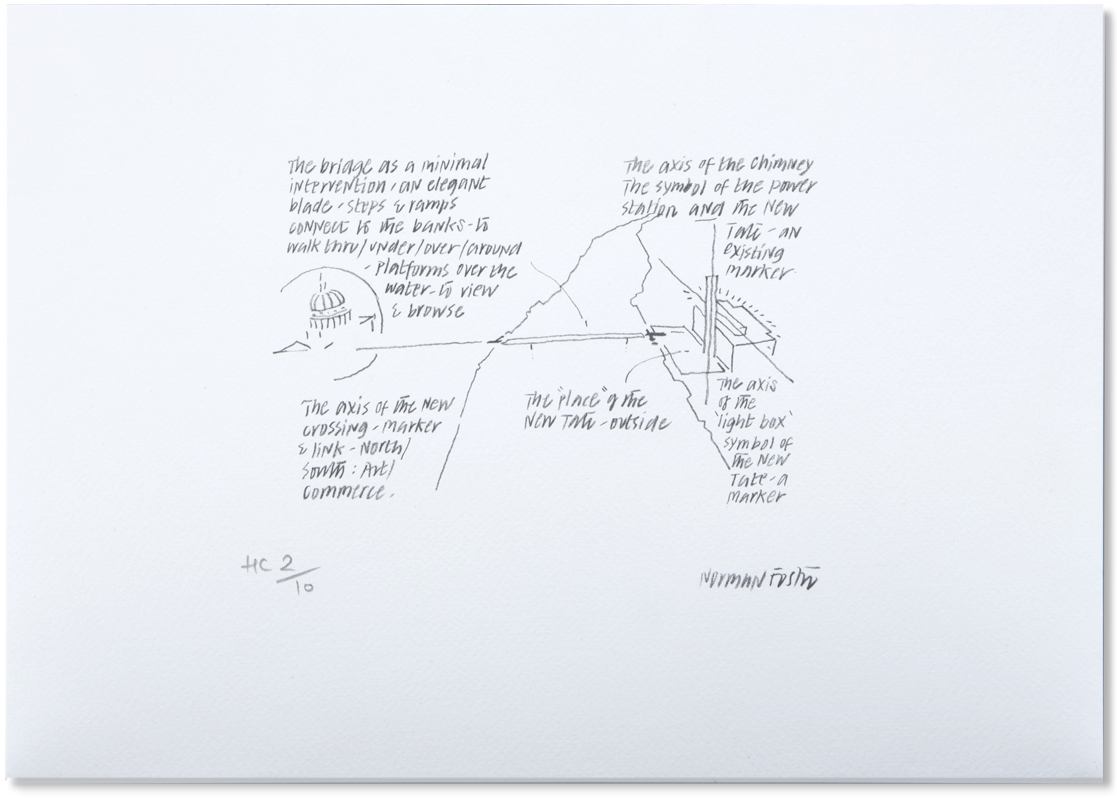 The bridge as a minimal
intervention, an elegant
blade, steps & ramps
connect to the banks - to
walk thru/under/over/around
- platforms over the
water - to view
& browse
The axis of the chimney
The symbol of the power
station and the New
Tate - an
existing
marker
The axis of the New
crossing - marker
& link - North/
South : Art/
Commerce.
The "place" of the
New Tate - outside
The axis
of the
'light box'
symbol of
the New
Tate - a
marker
HC 2/10
Norman Foster